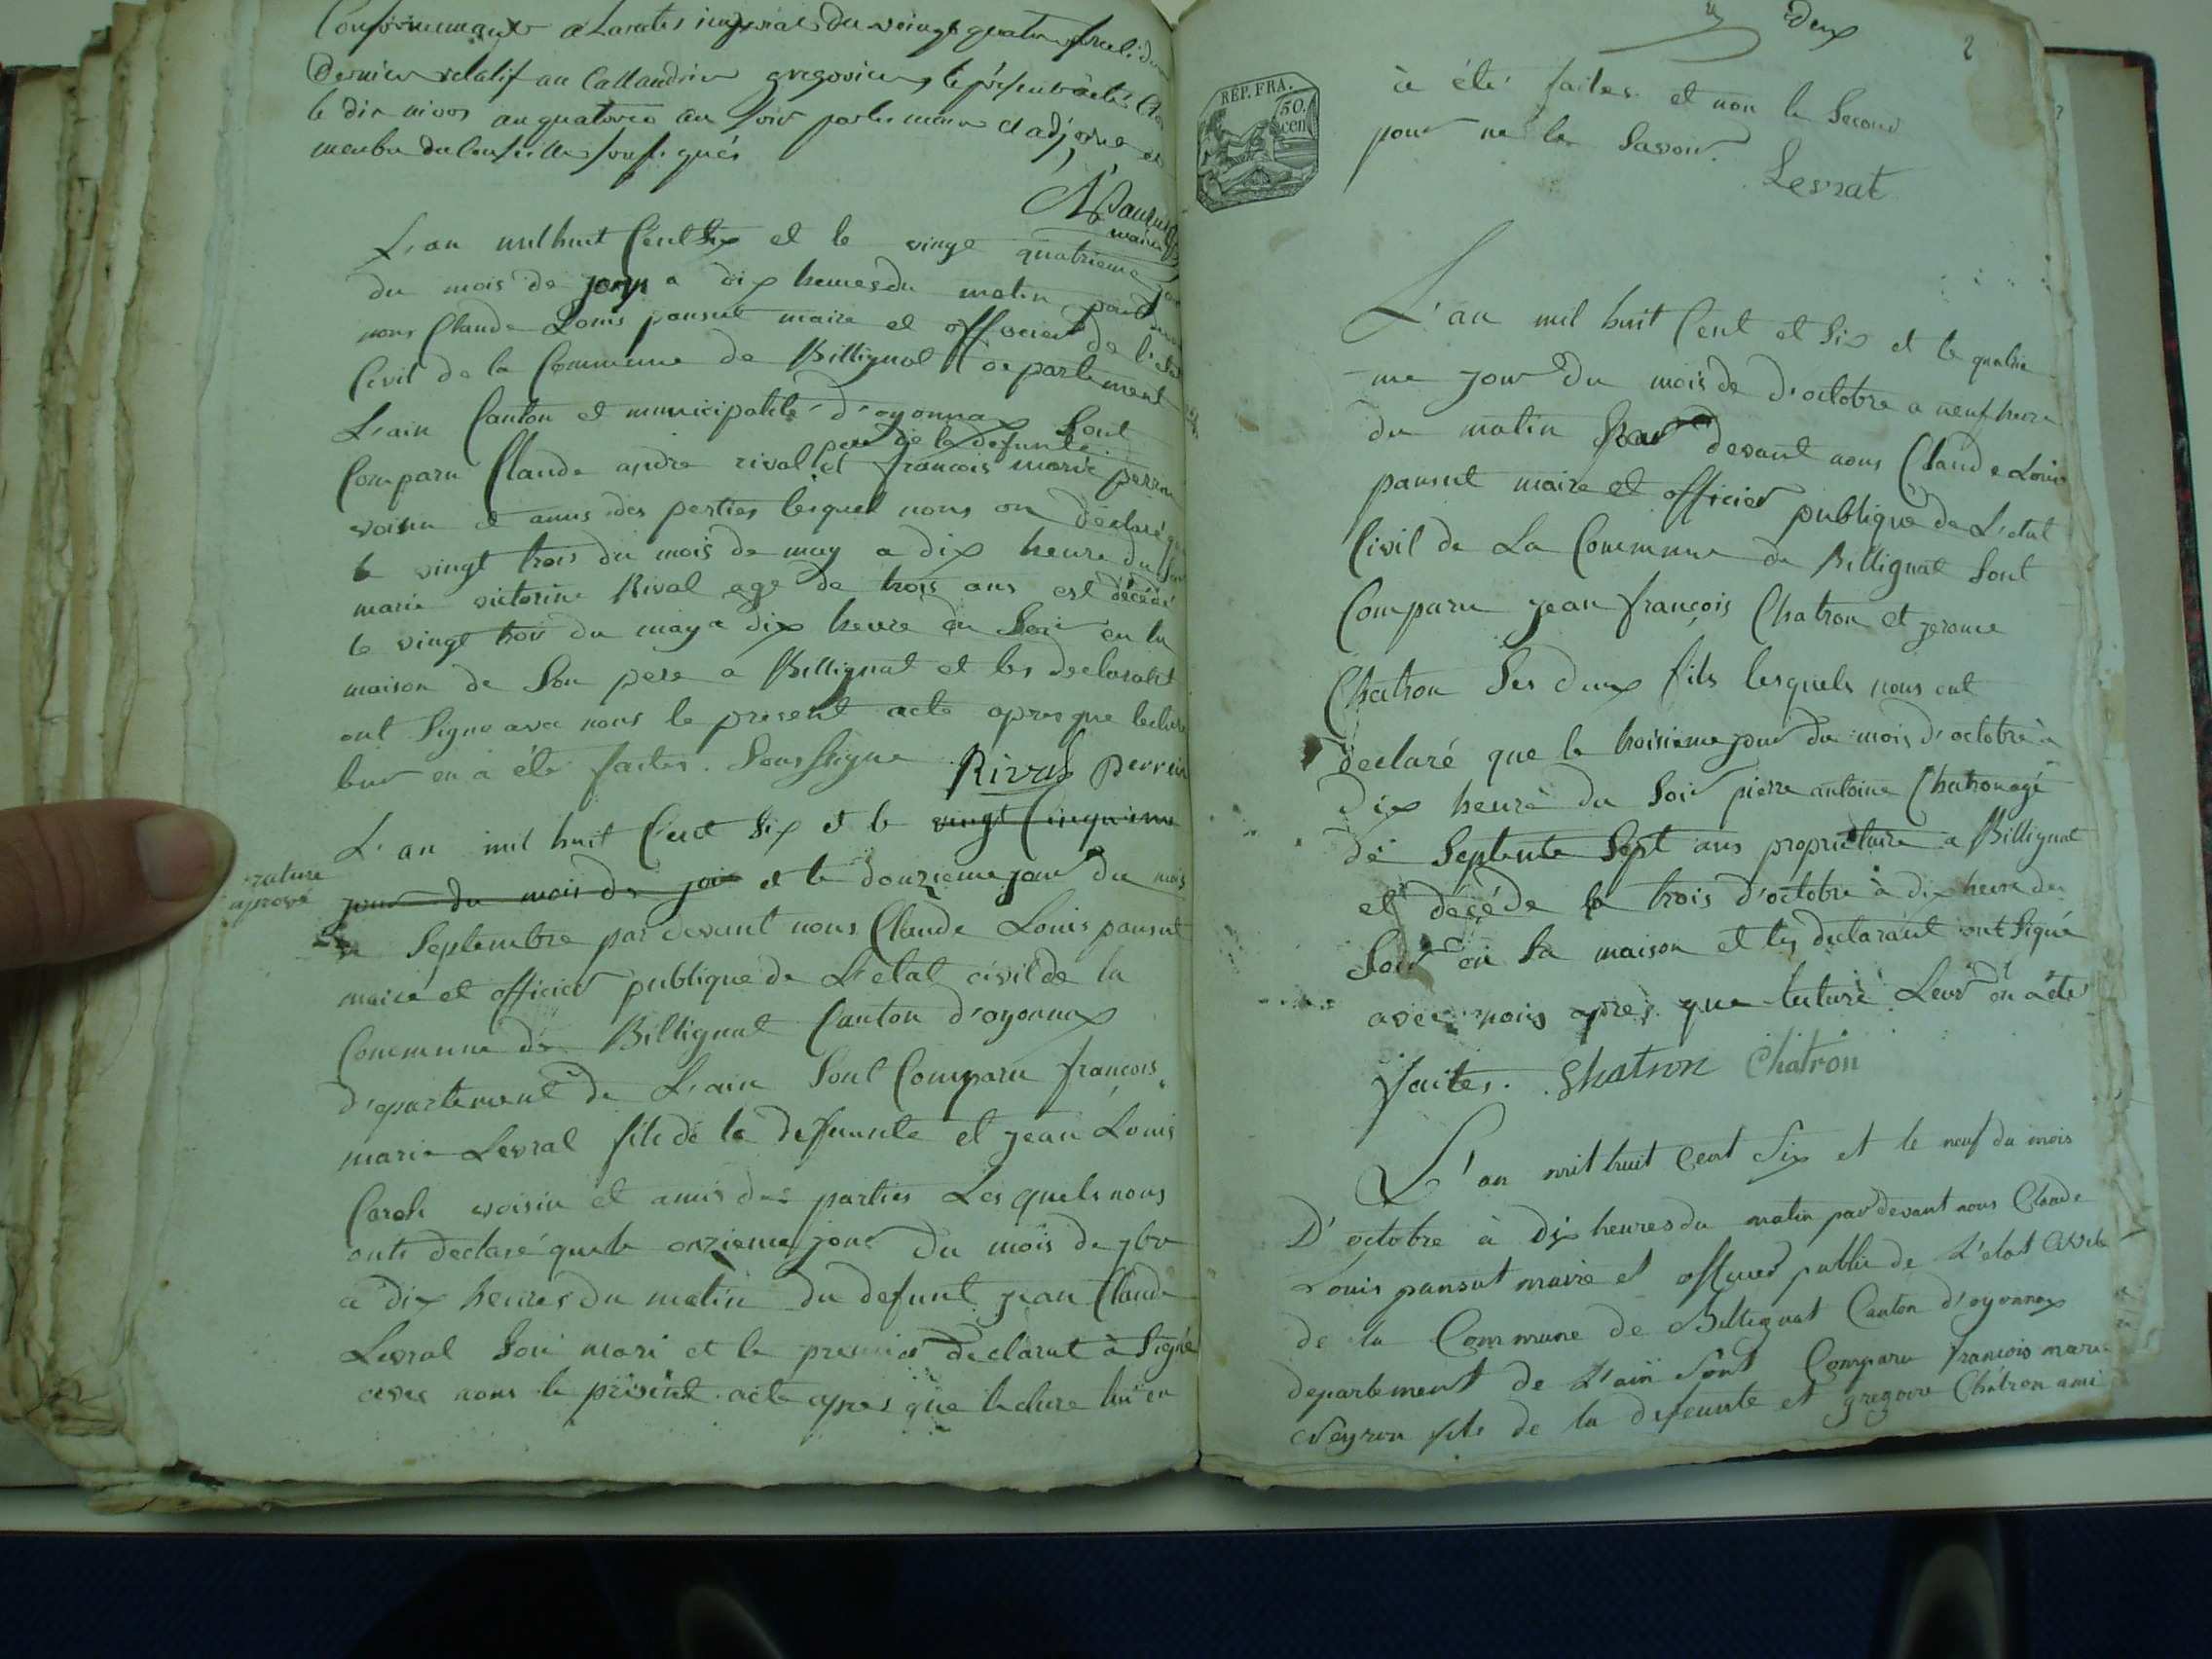 Conformement a Larretes imperial du vingt quatre
Dernier relatif au Callandrier gregorien, le présent
le dix nivos an quatorze au soir par les maire et adjoint et
membre du Conseille soussignés
maire
L'an mil huit Cent Six et le vingt quatrieme
du mois de a dix heures du matin pard
nous Claude Louis pansut maire et officier de L'etat
Civil de la Commune de Billignat departement
L'ain Canton et municipalité d'oyonnax Sont
pere de la defunte
Comparu Claude andre rival et francois marie perrin
voisin et amis des perties lesquel nous on déclaré
le vingt trois du mois de may a dix heure du
marie victorine Rival age de trois ans est décédé
le vingt trois du may a dix heure du Soir en la
maison de Son pere a Billignat et les declarant
ont Signe avec nous le present acte apres que lecture
leur en a été faites. Soussigne Rival perrin
L'an mil huit Cent Six et le vingt Cinquieme
rature
aprové
jour du mois de et le douzieme jour du mois
de Septembre par devant nous Claude Louis pansut
maire et officier publique de L'etat civil de la
Commune de Billignat Canton d'oyonnax
departement de L'ain Sont Comparu françois
marie Levrat fils de la defunte et jean Louis
voisin et amis des parties Les quels nous
onts declaré que le onzieme jour du mois de 7bre
a dix heures du matin du defunt jean Claude
Levrat Son mari et le premier declarat à Signé
avec nous le présent acte apres que lecture lui en
deux
2
REP. FRA.
50.
cen
à été faites et non le Second
pour ne le Savoir.
Levrat
L'an mil huit Cent et Six et le quatrie
me jour Du mois de d'octobre a neuf heure
du matin Par devant nous Claude Louis
pansut maire et officier publique de L'etat
Civil de La Commune de Billignat Sont
Comparu jean françois Chatron et jerome
Chatron Ses deux fils lesquels nous ont
declaré que le troisieme jour du mois d'octobre à
dix heure du Soir pierre antoine Chatron agé
de Septente Sept ans proprietaire a Billignat
et décéde le trois d'octobre à dix heure du
Soir en Sa maison et les declarant ont Signé
avec nous après que lecture Leur en à été
faites. Chatron Chatron
L'an mil huit Cent Six et le neuf du mois
D'octobre à Dix heures du matin par devant nous Claude
Louis pansut maire et officier public de L'etat Civile
de la Commune de Billignat Canton d'oyonnax
departement de L'ain Sont Comparu francois marie
Neyron fils de la defeunte et gregoire Chatron ami